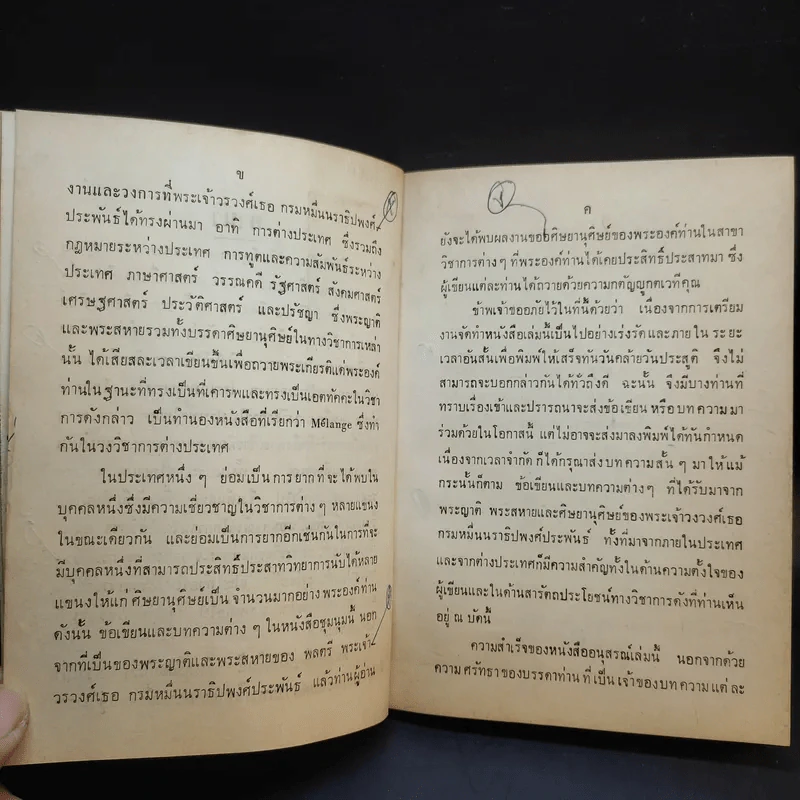 ข
งานและวงการที่พระเจ้าวรวงศ์เธอ กรมหมื่นนราธิปพงศ์-
ประพันธ์ได้ทรงผ่านมา อาทิ การต่างประเทศ ซึ่งรวมถึง
กฎหมายระหว่างประเทศ การทูตและความสัมพันธ์ระหว่าง
ประเทศ ภาษาศาสตร์ วรรณคดี รัฐศาสตร์ สังคมศาสตร์
เศรษฐศาสตร์ ประวัติศาสตร์ และปรัชญา ซึ่งพระญาติ
และพระสหายรวมทั้งบรรดาศิษยานุศิษย์ในทางวิชาการเหล่า
นั้น ได้เสียสละเวลาเขียนขึ้นเพื่อถวายพระเกียรติแด่พระองค์
ท่านในฐานะที่ทรงเป็นที่เคารพและทรงเป็นเอตทัคคะในวิชา
การดังกล่าว เป็นทำนองหนังสือที่เรียกว่า Mélange ซึ่งทำ
กันในวงวิชาการต่างประเทศ
ในประเทศหนึ่ง ๆ ย่อมเป็นการยากที่จะได้พบใน
บุคคลหนึ่งซึ่งมีความเชี่ยวชาญในวิชาการต่าง ๆ หลายแขนง
ในขณะเดียวกัน และย่อมเป็นการยากอีกเช่นกันในการที่จะ
มีบุคคลหนึ่งที่สามารถประสิทธิ์ประสาทวิทยาการนับได้หลาย
แขนงให้แก่ศิษยานุศิษย์เป็นจำนวนมากอย่างพระองค์ท่าน
ดังนั้น ข้อเขียนและบทความต่าง ๆ ในหนังสือชุมนุมนี้ นอก
จากที่เป็นของพระญาติและพระสหายของ พลตรี พระเจ้า
วรวงศ์เธอ กรมหมื่นนราธิปพงศ์ประพันธ์ แล้วท่านผู้อ่าน
ค
ยังจะได้พบผลงานของศิษยานุศิษย์ของพระองค์ท่านในสาขา
วิชาการต่าง ๆ ที่พระองค์ท่านได้เคยประสิทธิ์ประสาทมา ซึ่ง
ผู้เขียนแต่ละท่านได้ถวายด้วยความกตัญญูกตเวทีคุณ
ข้าพเจ้าขออภัยไว้ในที่นี้ด้วยว่า เนื่องจากการเตรียม
งานจัดทำหนังสือเล่มนี้เป็นไปอย่างเร่งรัดและภายใน ระยะ
เวลาอันสั้นเพื่อพิมพ์ให้เสร็จทันวันคล้ายวันประสูติ จึงไม่
สามารถจะบอกกล่าวกันได้ทั่วถึงดี ฉะนั้น จึงมีบางท่านที่
ทราบเรื่องเข้าและปรารถนาจะส่งข้อเขียน หรือบทความมา
ร่วมด้วยในโอกาสนี้ แต่ไม่อาจจะส่งมาลงพิมพ์ได้ทันกำหนด
เนื่องจากเวลาจำกัด ก็ได้กรุณาส่งบทความสั้น ๆ มาให้แม้
กระนั้นก็ตาม ข้อเขียนและบทความต่างๆ ที่ได้รับมาจาก
พระญาติ พระสหายและศิษยานุศิษย์ของพระเจ้าวงวงศ์เธอ
กรมหมื่นนราธิปพงศ์ประพันธ์ ทั้งที่มาจากภายในประเทศ
และจากต่างประเทศก็มีความสำคัญทั้งในด้านความตั้งใจของ
ผู้เขียนและในด้านสารัตถประโยชน์ทางวิชาการดังที่ท่านเห็น
อยู่ ณ บัดนี้
ความสำเร็จของหนังสืออนุสรณ์เล่มนี้ นอกจากด้วย
ความศรัทธาของบรรดาท่าน ที่เป็นเจ้าของบทความแต่ละ